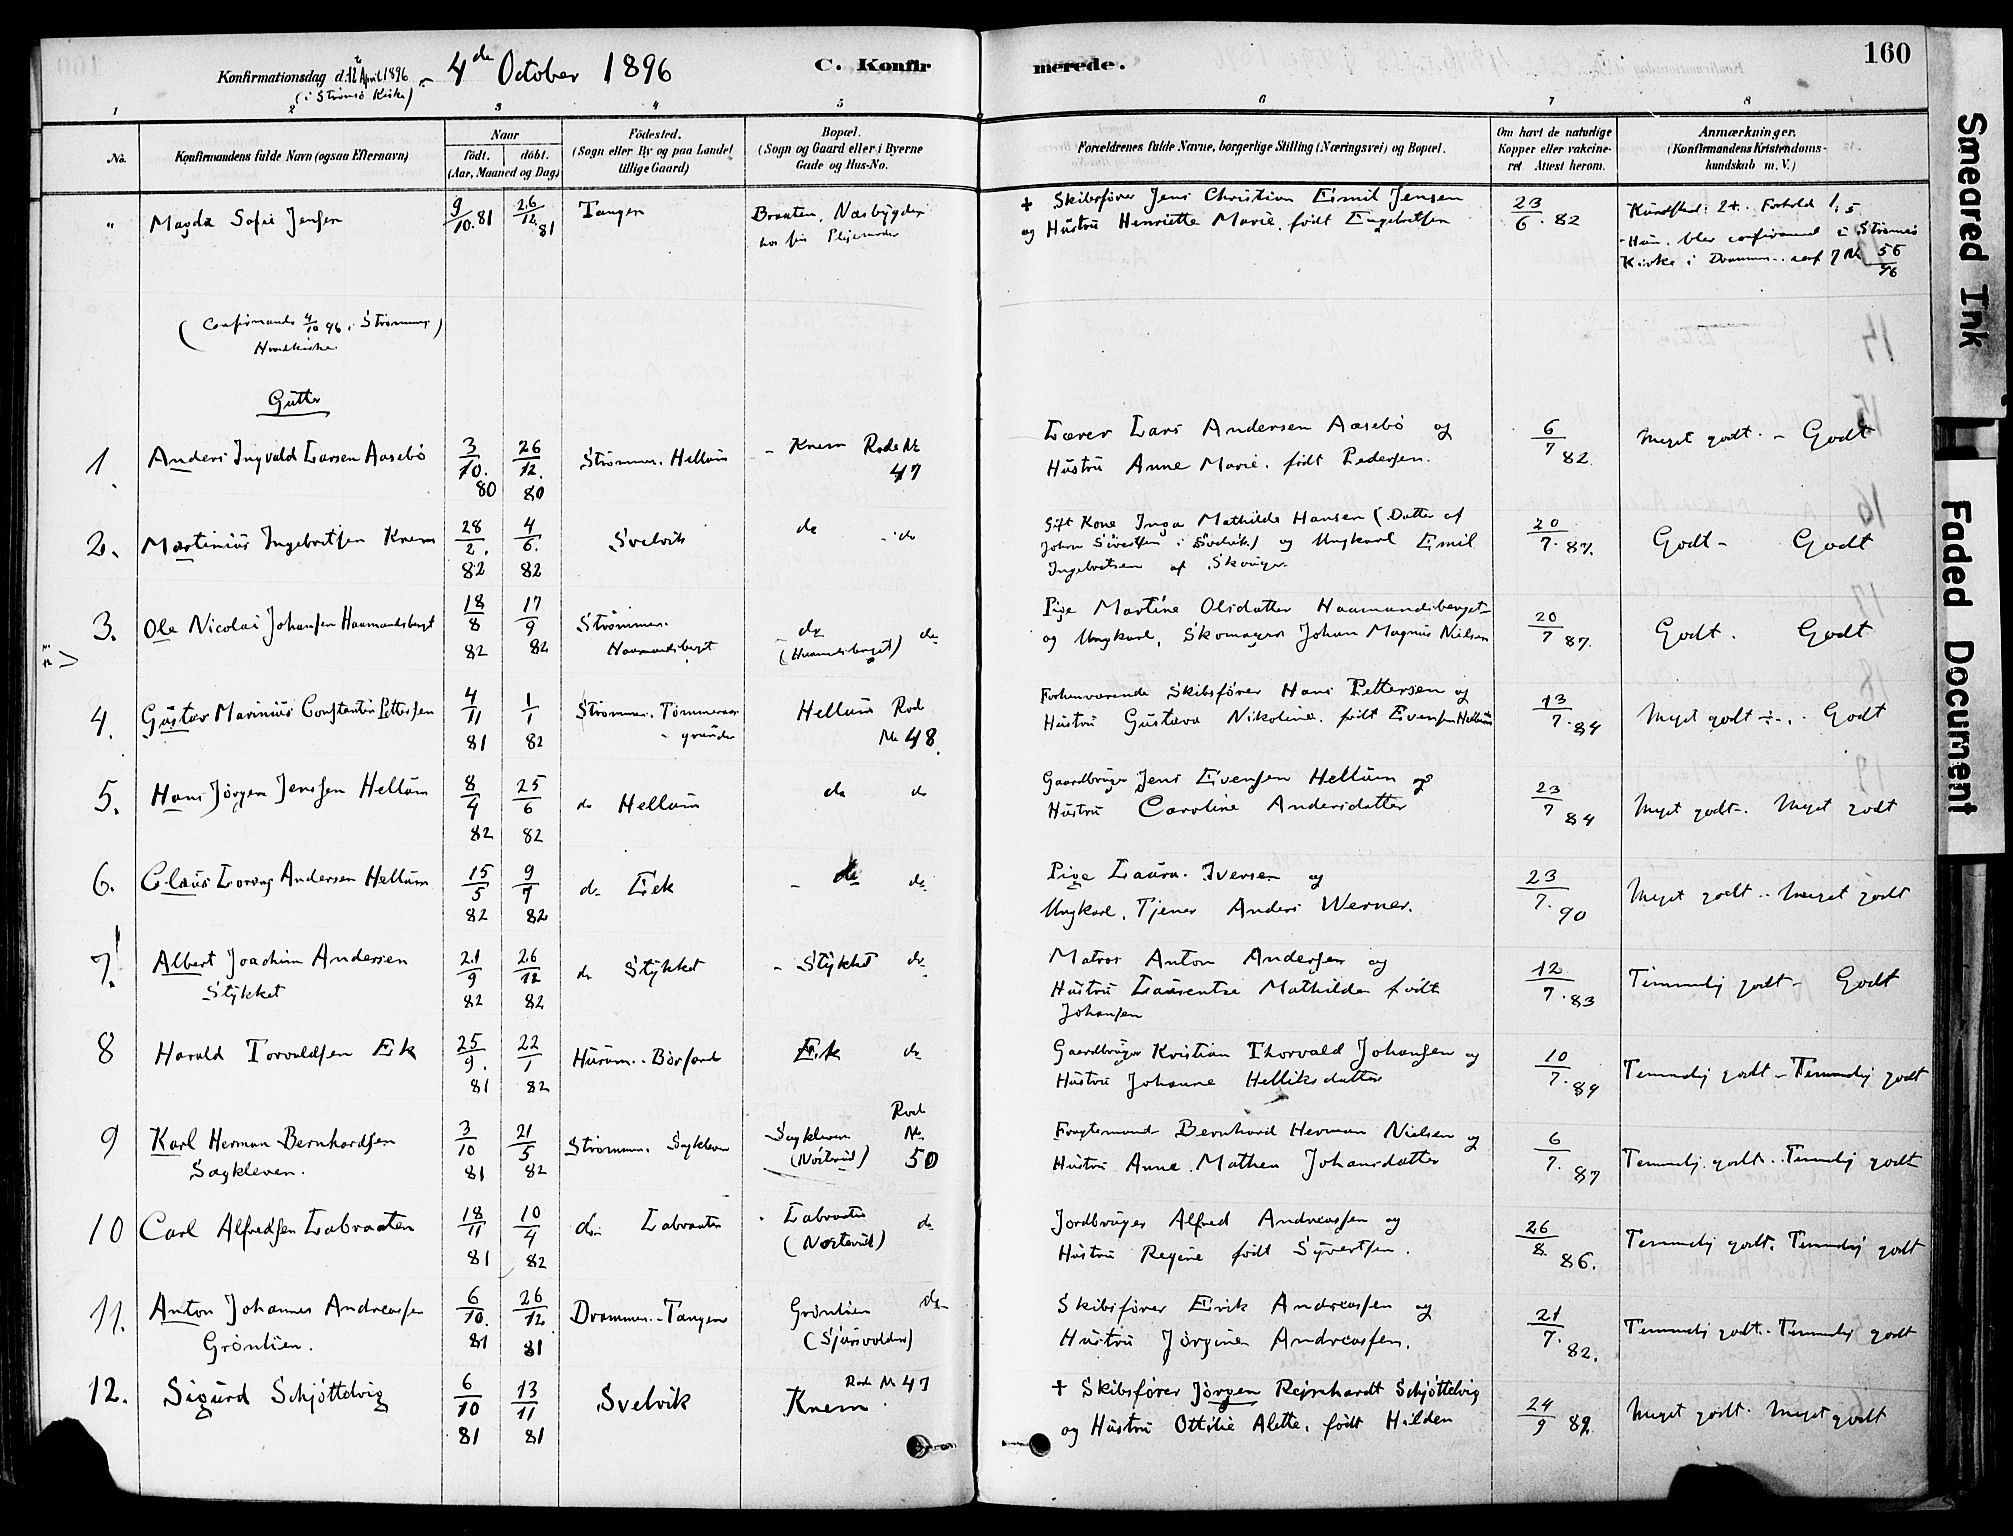 Konfirmationsdag d. 12 April 1896 - 4de October 1896
(i Strømsø Kirke)
C. Konfirmerede.
160
1 2 3 4 5 6 7 8
No.
Konfirmandens fulde Navn (ogsaa Efternavn)
Naar
født. døbt.
(Aar, Maaned og Dag)
Fødested.
(Sogn eller By og paa Landet
tillige Gaard)
Bopæl.
(Sogn og Gaard eller i Byerne
Gade og Hus-No.
Forældrenes fulde Navne, borgerlige Stilling (Næringsvei) og Bopæl.
Om havt de naturlige
Kopper eller vakcine-
ret Attest herom.
Anmærkninger.
(Konfirmandens Kristendoms-
kundskab m. V.)
" Magda Sofie Jensen 9/10. 81 26/12. 81 Tangen Braaten, Næsbygden
hos sin Plejemoder
+ Skibsfører Jens Christian Emil Jensen
og Hustru Henriette Marie, født Engebretsen
23/6. 82
Kundskab: 2+. Forhold 1,5
Hun blev confirmeret i Strømsø
Kirke i Drammen 56/96
(Confirmerede 4/10 96 i Strømmen
Hovedkirke)
Gutter
1. Anders Ingvald Larsen Aasebö 3/10. 80 26/12. 80 Strømmen. Hellum - Knem Rode No 47
Lærer Lars Andersen Aasebö og
Hustru Anne Marie. født Pedersen.
6/7 82. Meget godt. - Godt
2. Martinius Ingebritsen Knem 28/2. 82 4/6. 82 Svelvik do - do
Gift Kone Inga Mathilde Hansen (Datter af
Johan Sivertsen i Svelvik) og Ungkarl Emil
Ingebretsen af Skouger
20/7. 87. Godt - Godt
3. Ole Nicolai Johansen Haamandsberget 18/8 82 17/9 82 Strømmen.
Haamandsberget do (Haamandsberget) do
Pige Martine Olsdatter Haamandsberget
og Ungkarl, Skomager Johan Magnus Nielsen
20/7 87. Godt. Godt
4. Gustav Marinius Constantin Pettersen 4/11 81 1/1 82 Strømmen. Tømmeraas-
grunden Hellum Rode No 48.
Forhenværende Skibsfører Hans Pettersen og
Hustru Gustava Nikoline. født Evensen Hellum
13/7. 84 Meget godt ÷. Godt
5. Hans Jörgen Jenssen Hellum 8/4 82 25/6 82 do Hellum do do
Gaardbruger Jens Evensen Hellum og
Hustru Caroline Andersdatter
23/7 84 Meget godt. Meget godt
6. Claus Andersen Hellum 15/5 82 9/7 82 do Eek - do do
Pige Laura Iversen og
Ungkarl, Tjener Anders Werner.
23/7. 90 Meget godt. Meget godt
7! Albert Joachim Andersen
Stykket 21/9 82 26/12 82 do Stykket - Stykket do
Matros Anton Andersen og
Hustru Laurentze Mathilde født
Johansen
12/7. 83 Temmelig godt - Godt
8 Harald Torvaldsen Ek 25/9. 81 22/1 82 Hurum. Ek do
Gaardbruger Kristian Thorvald Johansen og
Hustru Johanne Helliksdatter
10/7. 84 Temmelig godt - Temmelig godt
9 Karl Herman Bernhardsen
Sagkleven. 3/10 81 21/5 82 Strømmen. Sagkleven Sagkleven
(Nostvid) Rode No. 50
Bernhard Herman Nielsen og
Hustru Anne Mathea Johansdatter
6/7. 87 Temmelig godt. Temmelig godt
10 Carl Alfredsen Labraaten 18/11 81 10/4 82 do Labraaten Labraaten
do
Jordbruger Alfred Andreassen og
Hustru Regine født Syvertsen.
26/8. 86. Temmelig godt. Temmelig godt
11. Anton Johannes Andreassen
Gröntien. 6/10. 81 26/12 81 Drammen. Tangen Gröntien do
(Sjursvolden)
Skibsfører Erik Andreassen og
Hustru Jörgine Andreassen.
21/7. 82. Temmelig godt. Temmelig godt
12. Sigurd Schjöttelvig 6/10 81 13/11 81 Svelvik Rode No 47
Knem.
+ Skibsfører Jörgen Rejnhardt Schjöttelvig
og Hustru Ottilie Alette, født Hilden
24/9 82. Meget godt. Meget godt
Smeared Ink
Faded Document